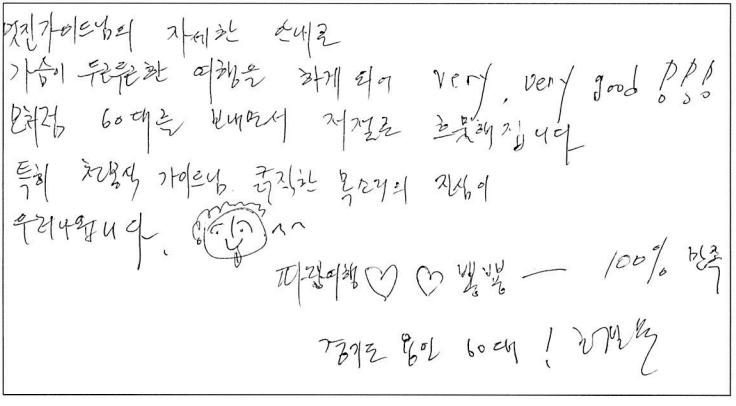 멋진가이드님의 자세한 안내로
가슴이 두근두근한 여행을 하게 되어 very, very good!!!
모처럼 60대를 보내면서 저절로 흐뭇해집니다
특히 천봉식 가이드님 굵직한 목소리의 진심이
우러나옵니다. ^^
파랑여행♡♡ 뿅뿅 — 100% 만족
경기도 용인 60대!